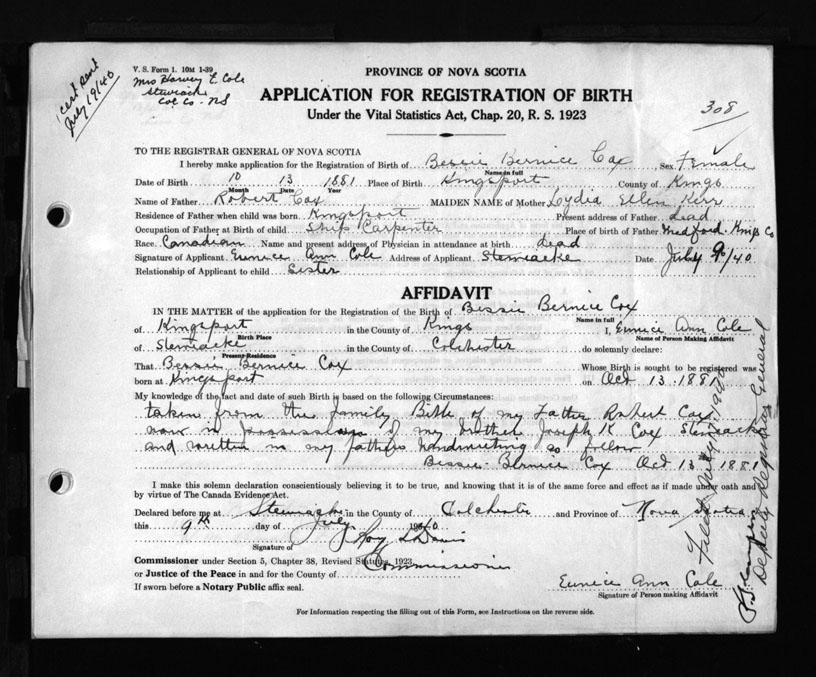 V. S. Form 1. 10M 1-39
Mrs Harvey E. Cole
Stewiacke
Col Co - NS
cert sent
July 19/40
PROVINCE OF NOVA SCOTIA
APPLICATION FOR REGISTRATION OF BIRTH
Under the Vital Statistics Act, Chap. 20, R. S. 1923
308
TO THE REGISTRAR GENERAL OF NOVA SCOTIA
I hereby make application for the Registration of Birth of Bessie Bernice Cox, Sex Female
Name in full
Date of Birth 10 13 1881 Place of Birth Kingsport County of Kings
Month Day Year
Name of Father Robert Cox MAIDEN NAME of Mother Lydia Ellen Kerr
Residence of Father when child was born Kingsport Present address of Father dead
Occupation of Father at Birth of child Ship Carpenter Place of birth of Father Medford Kings Co
Race Canadian Name and present address of Physician in attendance at birth dead
Signature of Applicant Eunice Ann Cole Address of Applicant Stewiacke Date July 9/40
Relationship of Applicant to child Sister
AFFIDAVIT
IN THE MATTER of the application for the Registration of the Birth of Bessie Bernice Cox
Name in full
of Kingsport in the County of Kings I, Eunice Ann Cole
Birth Place Name of Person Making Affidavit
of Stewiacke in the County of Colchester do solemnly declare:
Present Residence
That Bessie Bernice Cox Whose Birth is sought to be registered was
born at Kingsport on Oct 13 1881
My knowledge of the fact and date of such Birth is based on the following Circumstances:
taken from the family Bible of my Father Robert Cox
now in possession of my brother Joseph K Cox Stewiacke
and written in my fathers handwriting as follow
Bessie Bernice Cox Oct 13 1881
I make this solemn declaration conscientiously believing it to be true, and knowing that it is of the same force and effect as if made under oath and by virtue of The Canada Evidence Act.
Declared before me at Stewiacke in the County of Colchester and Province of Nova Scotia
this 9th day of July 1940
Signature of Roy L Davis
Commissioner under Section 5, Chapter 38, Revised Statutes, 1923
Commissioner
or Justice of the Peace in and for the County of
If sworn before a Notary Public affix seal.
Eunice Ann Cole
Signature of Person making Affidavit
For Information respecting the filling out of this Form, see Instructions on the reverse side.
Filed July 1940
Deputy Registrar General